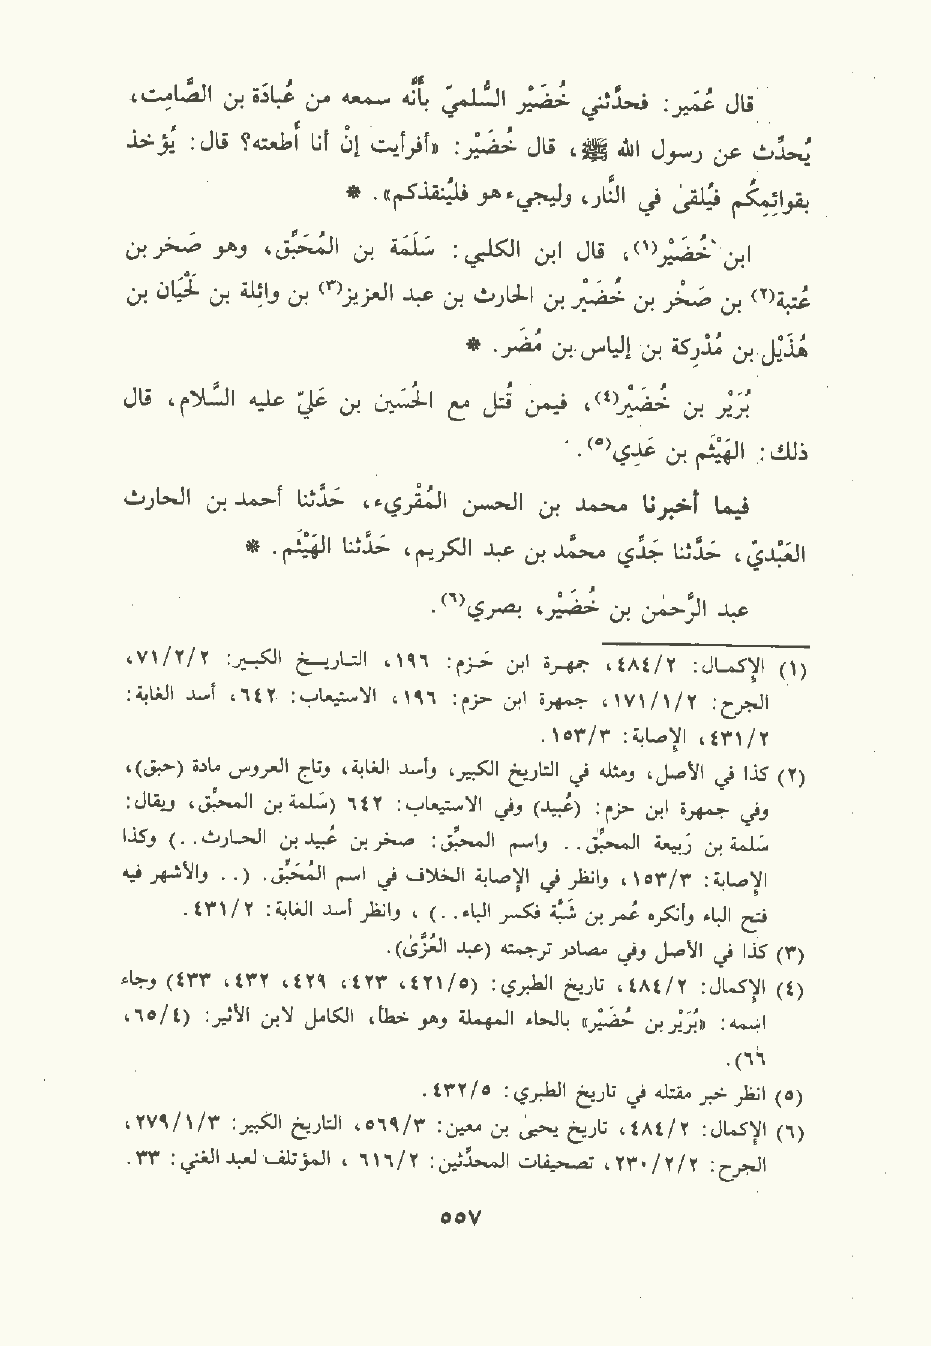 قال عُمَير: فحدَّثني خُضَيْر السُّلميّ بأنَّه سمعه من عُبادَة بن الصَّامِت،
يُحدِّث عن رسول الله ﷺ، قال خُضَيْر: «أفرأيت إنْ أنا أُطعته؟ قال: يُؤخذ
بقوائِمِكُم فيُلقىٰ في النَّار، وليجيء هو فليُنقذكم». *
ابن خُضَيْر(١)، قال ابن الكلبي: سَلَمَة بن المُحَبِّق، وهو صَخر بن
عُتبة(٢) بن صَخْر بن خُضَيْر بن الحارث بن عبد العزيز(٣) بن وائِلة بن لَحْيَان بن
هُذَيْل بن مُدْرِكة بن إلياس بن مُضَر. *
بُرَيْر بن خُضَيْر(٤)، فيمن قُتل مع الحُسَين بن عَليّ عليه السَّلام، قال
ذلك: الهَيْثَم بن عَدِي(٥).
فيما أخبرنا محمد بن الحسن المُقريء، حَدَّثنا أحمد بن الحارث
العَبْديّ، حَدَّثنا جَدِّي محمَّد بن عبد الكريم، حَدَّثنا الهَيْثَم. *
عبد الرَّحمٰن بن خُضَيْر، بصري(٦).
(١) الإكمال: ٤٨٤/٢، جمهرة ابن حَزم: ١٩٦، التاريخ الكبير: ٧١/٢/٢،
الجرح: ١٧١/١/٢، جمهرة ابن حزم: ١٩٦، الاستيعاب: ٦٤٢، أسد الغابة:
٤٣١/٢، الإصابة: ١٥٣/٣.
(٢) كذا في الأصل، ومثله في التاريخ الكبير، وأسد الغابة، وتاج العروس مادة (حبق)،
وفي جمهرة ابن حزم: (عُبيد) وفي الاستيعاب: ٦٤٢ (سَلمة بن المحبِّق، ويقال:
سَلمة بن رَبيعة المحبَّق.. واسم المحبِّق: صخر بن عُبيد بن الحارث..) وكذا
الإصابة: ١٥٣/٣، وانظر في الإصابة الخلاف في اسم المُحَبِّق. (.. والأشهر فيه
فتح الباء وأنكره عُمر بن شَبَّة فكسر الباء..) ، وانظر أسد الغابة: ٤٣١/٢.
(٣) كذا في الأصل وفي مصادر ترجمته (عبد العُزَّىٰ).
(٤) الإكمال: ٤٨٤/٢، تاريخ الطبري: (٤٢١/٥، ٤٢٣، ٤٢٩، ٤٣٢، ٤٣٣) وجاء
اسمه: «بُرَيْر بن حُضَيْر» بالحاء المهملة وهو خطأ، الكامل لابن الأثير: (٦٥/٤،
٦٦).
(٥) انظر خبر مقتله في تاريخ الطبري: ٤٣٢/٥.
(٦) الإكمال: ٤٨٤/٢، تاريخ يحيىٰ بن معين: ٥٦٩/٣، التاريخ الكبير: ٢٧٩/١/٣،
الجرح: ٢٣٠/٢/٢، تصحيفات المحدِّثين: ٦١٦/٢ ، المؤتلف لعبد الغني: ٣٣.
٥٥٧